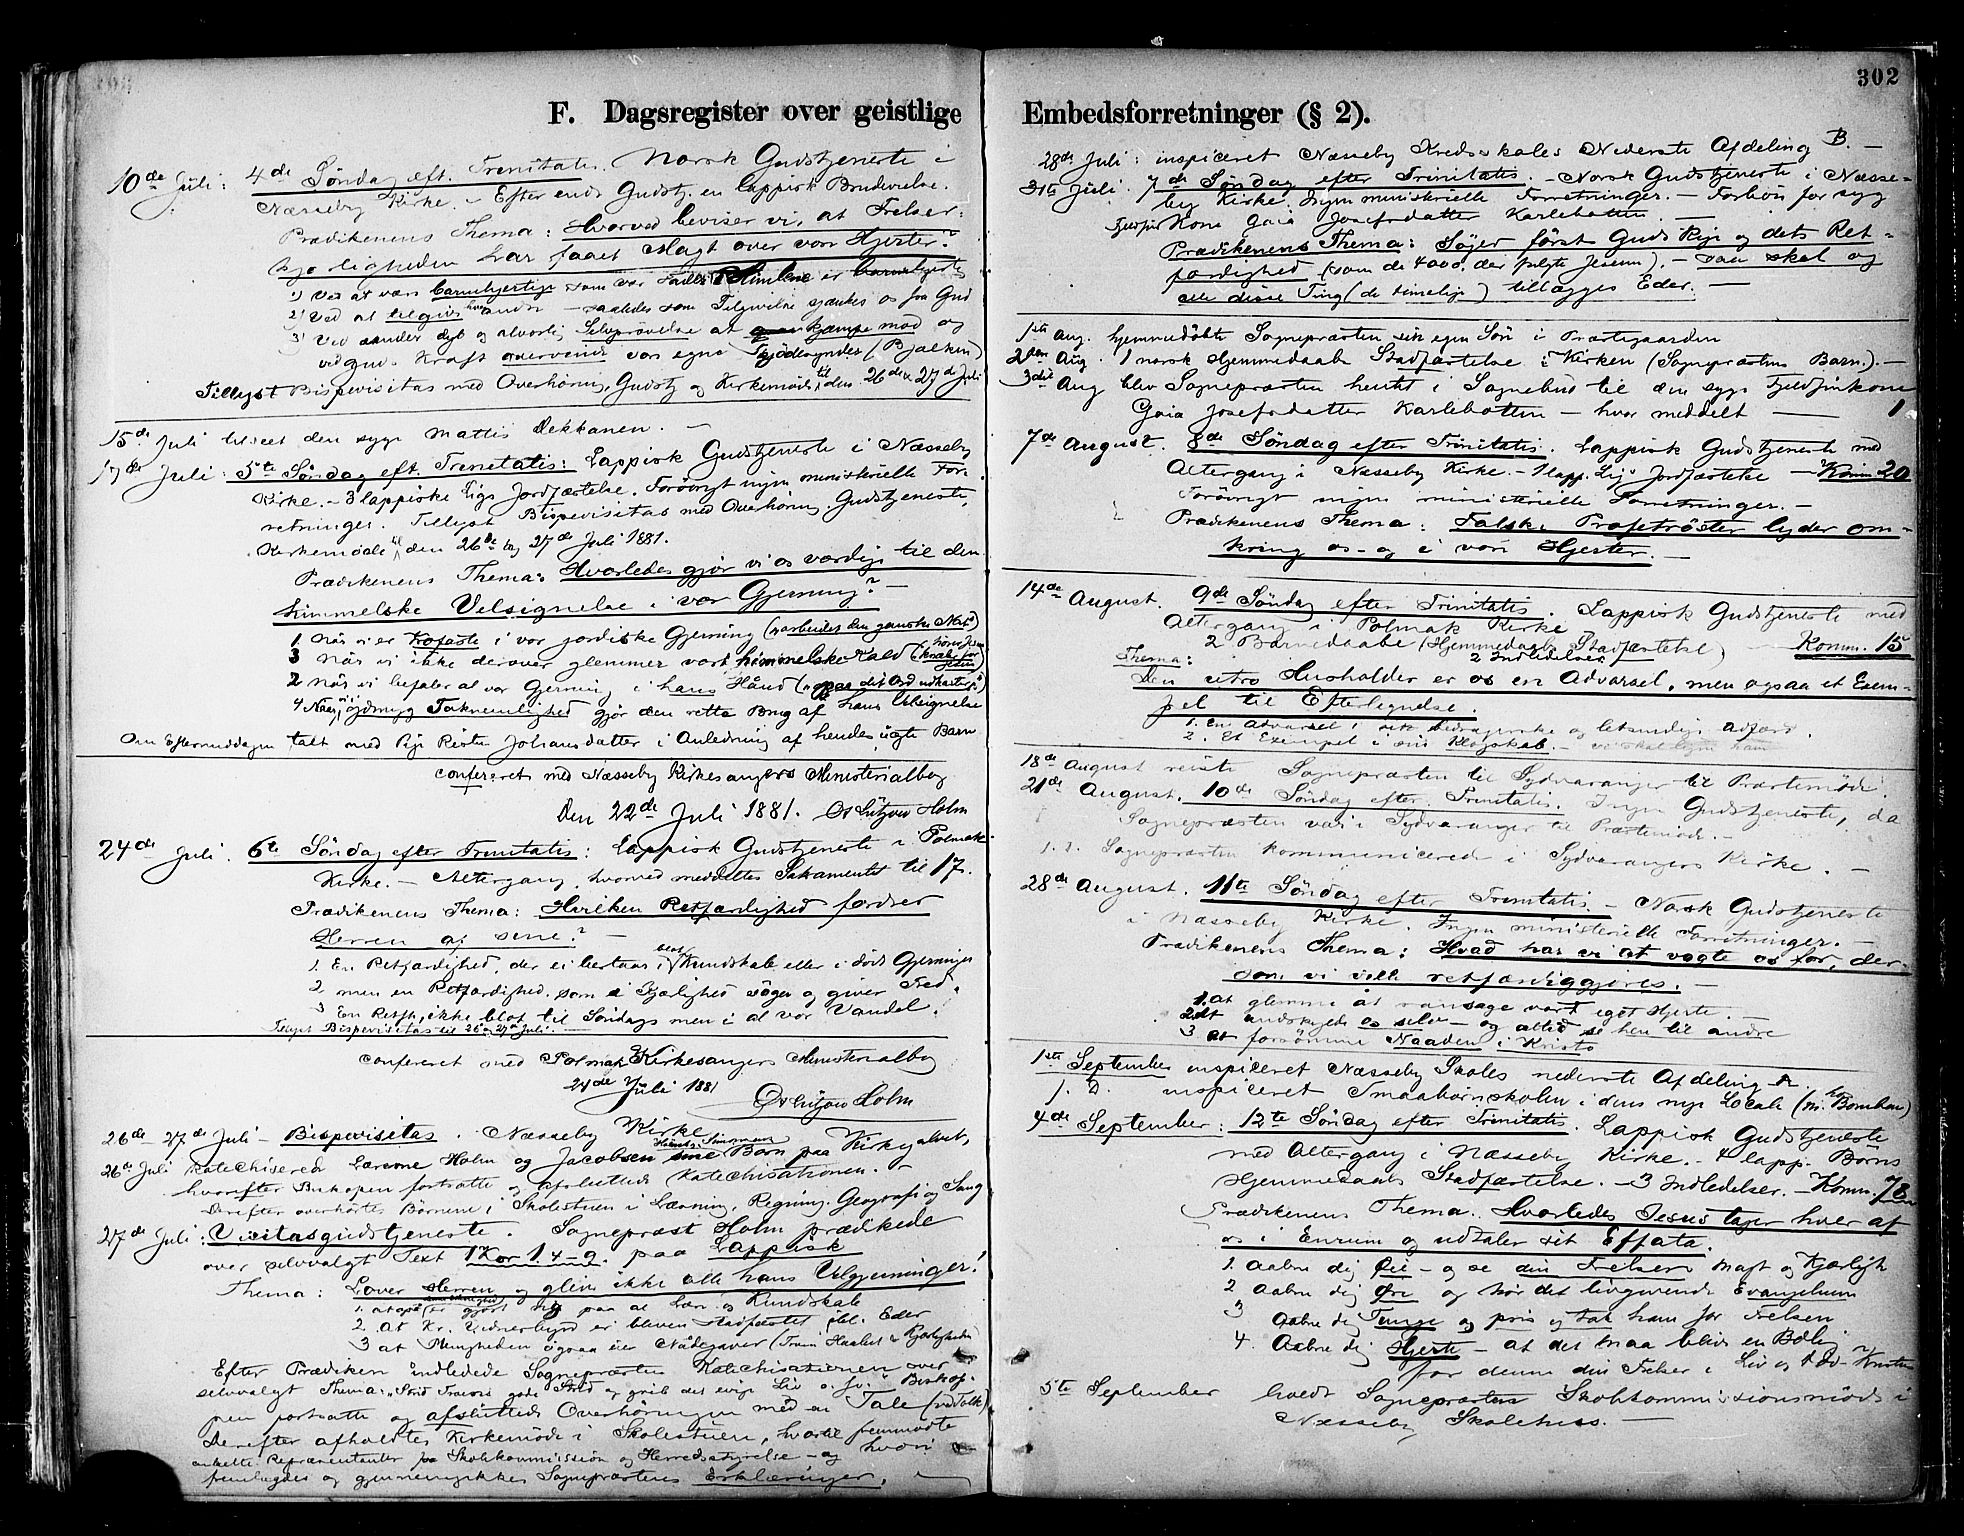 F. Dagsregister over geistlige
10de Juli: 4de Søndag eft. Trinitatis. Norsk Gudstjeneste i
Næsseby Kirke. – Efter endt Gudstj. en lappisk Brudevielse.
Prædikenens Thema: Hvorved beviser vi, at Frelser-
kjærligheden har faaet Magt over vore Hjerter?
1) Ved at være barmhjertige som vor Fader i Himlene er barmhjertig
2) Ved at tilgive hverandre – saaledes som Tilgivelse skjænkes os fra Gud
3) Ved under dyb og alvorlig Selvprøvelse at kjæmpe mod og
ved Guds Kraft overvinde vor egne Kjødssynder (Bjælken)
Tillyst Bispevisitas med Overhøring, Gudstj og Kirkemøde til den 26de & 27de Juli
15de Juli tilseet den syge Mattis Dekkanen. –
17de Juli: 5te Søndag eft. Trinitatis: Lappisk Gudstjeneste i Næsseby
Kirke. – 3 lappiske Ligs Jordfæstelse. Forøvrigt ingen ministerielle For-
retninger. Tillyst Bispevisitas med Overhøring, Gudstjeneste,
Kirkemøde til den 26de og 27de Juli 1881.
Prædikenens Thema: Hvorledes gjør vi os værdige til den
himmelske Velsignelse i vor Gjerning?
1 Når vi er trofaste i vor jordiske Gjerning (arbeidet den ganske Nat)
3 Når vi ikke derover glemmer vort himmelske Kald
2 Når vi befaler al vor Gjerning i hans Hånd (paa dit Ord udkaster)
4 Når i ydmyg Taknemlighed gjør den rette Brug af hans Velsignelse
Om Eftermiddagen talt med Pige Risten Johansdatter i Anledning af hendes uægte Barn
Confereret med Næsseby Kirkesangers Ministerialbog
Den 22de Juli 1881. O Lützow Holm
24de Juli. 6te Søndag efter Trinitatis: Lappisk Gudstjeneste i Polmak
Kirke. – Altergang, hvorved meddeltes Sakramentet til 17.
Prædikenens Thema: Hvilken Retfærdighed fordrer
Herren af sine? –
1. En Retfærdighed, der ei bestaar i blot Kundskab eller i døde Gjerninger
2 men en Retfærdighed, som i Kjærlighed søger og giver Fred.
3 En Retfh, ikke blot til Søndags men i al vor Vandel.
Tillyst Bispevisitas til 26 og 27de Juli.
Confereret med Polmak Kirkesangers Ministerialbog
24de Juli 1881
O Lützow Holm
26de – 27de Juli – Bispevisitas. Næsseby Kirke
26de Juli Katechiserede Lærerne Holm og Jacobsen sine Børn paa Kirkegulvet,
hvorefter Biskopen fortsatte og afsluttede Katechisationen. –
Derefter overhørtes Børnene i Skolestuen i Læsning, Regning, Geografi og Sang
27de Juli: Visitasgudstjeneste. Sognepræst Holm prædikede
over selvvalgt Text 1 Kor 1 4–9. paa Lappisk
Thema: Lover Herren og glem ikke alle hans Velgjerninger!
1. at gjort rig paa al Lære og Kundskab
2. At Kr. Vidnesbyrd er bleven stadfæstet bl. Eder
3 at Menigheden ogsaa eier Nådegaver (Troen Haabet & Kjærligheden)
Efter Prædiken indledede Sognepræsten Katechisationen over
selvvalgt Thema: „Strid Troens gode Strid og grib det evige Liv o. s. v. Bisko-
pen fortsatte og afsluttede Overhøringen med en Tale (ved Tolk)
Derefter afholdtes Kirkemøde i Skolestuen, hvortil fremmødte
enkelte Repræsentanter fra Skolekommission og Herredsstyrelse – og hvori
fremlagdes og gjennemgikkes Sognepræstens Erklæringer. –
302
Embedsforretninger (§ 2).
28de Juli: inspiceret Næsseby Kredsskoles Nederste Afdeling B. –
31te Juli. 7de Søndag efter Trinitatis. – Norsk Gudstjeneste i Næsse-
by Kirke. Ingen ministerielle Forretninger. – Forbøn for syg
Kone Gaia Josefsdatter Karlebotten. –
Prædikenens Thema: Søger først Guds Rige og dets Ret-
færdighed (som de 4000, der fulgte Jesum), – saa skal og
alle disse Ting (de timelige) tillægges Eder. –
1ste Aug. hjemmedøbte Sognepræsten sin egen Søn i Præstegaarden
2den Aug. 1 norsk Hjemmedaabs Stadfæstelse i Kirken (Sognepræstens Barn). –
3die Aug blev Sognepræsten hentet i Sognebud til den syge Fjeldfinkone
Gaia Josefsdatter Karlebotten – hvor meddelt — 1
7de August. 8de Søndag efter Trinitatis. Lappisk Gudstjeneste med
Altergang i Næsseby Kirke. – 1 lapp. Ligs Jordfæstelse – Komm 20
Forøvrigt ingen ministerielle Forretninger. –
Prædikenens Thema: Falske Profetrøster lyder om-
kring os – og i vore Hjerter. –
14de August. 9de Søndag efter Trinitatis. Lappisk Gudstjeneste med
Altergang i Polmak Kirke
2 Barnedaabe (Hjemmedaabs Stadfæstelse) – Komm. 15
2 Indledelser
Thema:
Den utro Husholder er os en Advarsel, men ogsaa et Exem-
pel til Efterlignelse.
1. En Advarsel i sit bedragerske og letsindige Adfærd.
2. Et Exempel i sin Klogskab. – vi skal ligne ham
18de August reiste Sognepræsten til Sydvaranger til Præstemøde.
21de August. 10de Søndag efter Trinitatis. Ingen Gudstjeneste, da
Sognepræsten var i Sydvaranger til Præstemøde. –
Sognepræsten kommunicerede i Sydvarangers Kirke. –
28de August. 11te Søndag efter Trinitatis. – Norsk Gudstjeneste
i Næsseby Kirke. Ingen ministerielle Forretninger. –
Prædikenens Thema: Hvad har vi at vogte os for, der-
som vi ville retfærdiggjøres. –
1. At glemme at ransage vort eget Hjerte. –
2. At undskylde os selv – og altid se hen til andre
3 At forsømme Naaden i Kristo
1ste September inspiceret Næsseby Skoles nederste Afdeling A.
s. D. inspiceret Smaabørnskolen i dens nye Locale
4de September: 12te Søndag efter Trinitatis. Lappisk Gudstjeneste
med Altergang i Næsseby Kirke. – 4 lapp. Børns
Hjemmedaabs Stadfæstelse. – 3 Indledelser. – Komm. 78
Prædikenens Thema. Hvorledes Jesus tager hver af
os i Enrum og udtaler sit Effata.
1. Aabne dig Øie – og se din Frelsers Magt og Kjærligh
2 Aabne dig Øre og hør det livgivende Evangelium
3 Aabne dig Tunge og pris og tak ham for Frelsen
4. Aabne dig Hjerte – at det maa blive en Bolig
for denne din Frelser i Liv og Død – Kristus
5te September holdt Sognepræsten Skolekommissionsmøde i
Næsseby Skolehus. –